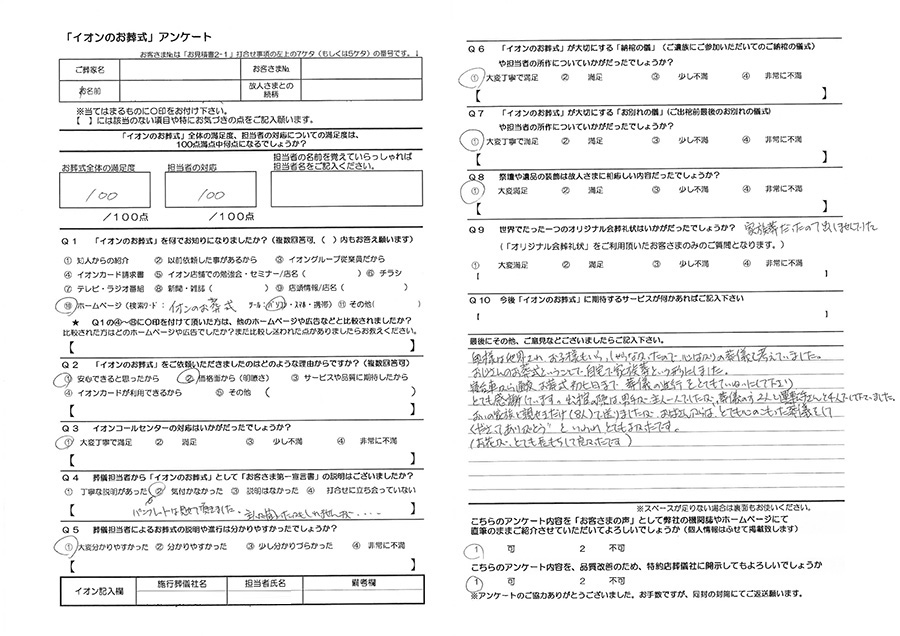 「イオンのお葬式」アンケート
お客さま№は「お見積書2-1」打合せ事項の左上の7ケタ(もしくは5ケタ)の番号です。
ご葬家名
お客さま№
お名前
故人さまとの続柄
※当てはまるものに〇印をお付け下さい。
【 】には該当のない項目や特にお気づきの点をご記入願います。
「イオンのお葬式」全体の満足度、担当者の対応についての満足度は、
100点満点中何点になるでしょうか?
お葬式全体の満足度
担当者の対応
担当者の名前を覚えていらっしゃれば
担当者名をご記入ください。
100
100
/100点
/100点
Q1 「イオンのお葬式」を何でお知りになりましたか?(複数回答可、( )内もお答え願います)
① 知人からの紹介 ② 以前依頼した事があるから ③ イオングループ従業員だから
④ イオンカード請求書 ⑤ イオン店舗での勉強会・セミナー/店名( ) ⑥ チラシ
⑦ テレビ・ラジオ番組 ⑧ 新聞・雑誌( ) ⑨ 店頭情報/店名( )
⑩ ホームページ(検索ワード: イオンのお葬式 ツール:パソコン・スマホ・携帯) ⑪ その他( )
★ Q1の④~⑩に〇印を付けて頂いた方は、他のホームページや広告などと比較されましたか?
比較された方はどのホームページや広告でしたか?また比較し迷われた点がありましたらお教えください。
【 】
Q2 「イオンのお葬式」をご依頼いただきましたのはどのような理由からですか?(複数回答可)
① 安心できると思ったから ② 価格面から(明瞭さ) ③ サービスや品質に期待したから
④ イオンカードが利用できるから ⑤ その他 ( )
【 】
Q3 イオンコールセンターの対応はいかがだったでしょうか?
① 大変丁寧で満足 ② 満足 ③ 少し不満 ④ 非常に不満
【 】
Q4 葬儀担当者から「イオンのお葬式」として「お客さま第一宣言書」の説明はございましたか?
① 丁寧な説明があった ② 気付かなかった ③ 説明はなかった ④ 打合せに立ち会っていない
【パンフレットは見せて頂きました。 】
Q5 葬儀担当者によるお葬式の説明や進行は分かりやすかったでしょうか?
① 大変分かりやすかった ② 分かりやすかった ③ 少し分かりづらかった ④ 非常に不満
【 】
イオン記入欄
施行葬儀社名
担当者氏名
備考欄
Q6 「イオンのお葬式」が大切にする「納棺の儀」(ご遺族にご参加いただいてのご納棺の儀式)
や担当者の所作についていかがだったでしょうか?
① 大変丁寧で満足 ② 満足 ③ 少し不満 ④ 非常に不満
【 】
Q7 「イオンのお葬式」が大切にする「お別れの儀」(ご出棺前最後のお別れの儀式)
や担当者の所作についていかがだったでしょうか?
① 大変丁寧で満足 ② 満足 ③ 少し不満 ④ 非常に不満
【 】
Q8 祭壇や遺品の装飾は故人さまに相応しい内容だったでしょうか?
① 大変満足 ② 満足 ③ 少し不満 ④ 非常に不満
【 】
Q9 世界でたった一つのオリジナル会葬礼状はいかがだったでしょうか? 家族葬だったので出しませんでした
(「オリジナル会葬礼状」をご利用頂いたお客さまのみのご質問となります。)
① 大変満足 ② 満足 ③ 少し不満 ④ 非常に不満
【 】
Q10 今後「イオンのお葬式」に期待するサービスが何かあればご記入下さい
【 】
最後にその他、ご意見などございましたらご記入下さい。
おじさんのお葬式ということで、自宅で家族葬というかたちにしました。
とても感謝しています。
(お花が、とても長もちして良かったです)
※スペースが足りない場合は裏面もお使いください。
こちらのアンケート内容を「お客さまの声」として弊社の機関誌やホームページにて
直筆のままご紹介させていただいてよろしいでしょうか(個人情報はふせて掲載致します)
1 可 2 不可
こちらのアンケート内容を、品質改善のため、特約店葬儀社に開示してもよろしいでしょうか
1 可 2 不可
※アンケートのご協力ありがとうございました。お手数ですが、同封の封筒にてご返送願います。